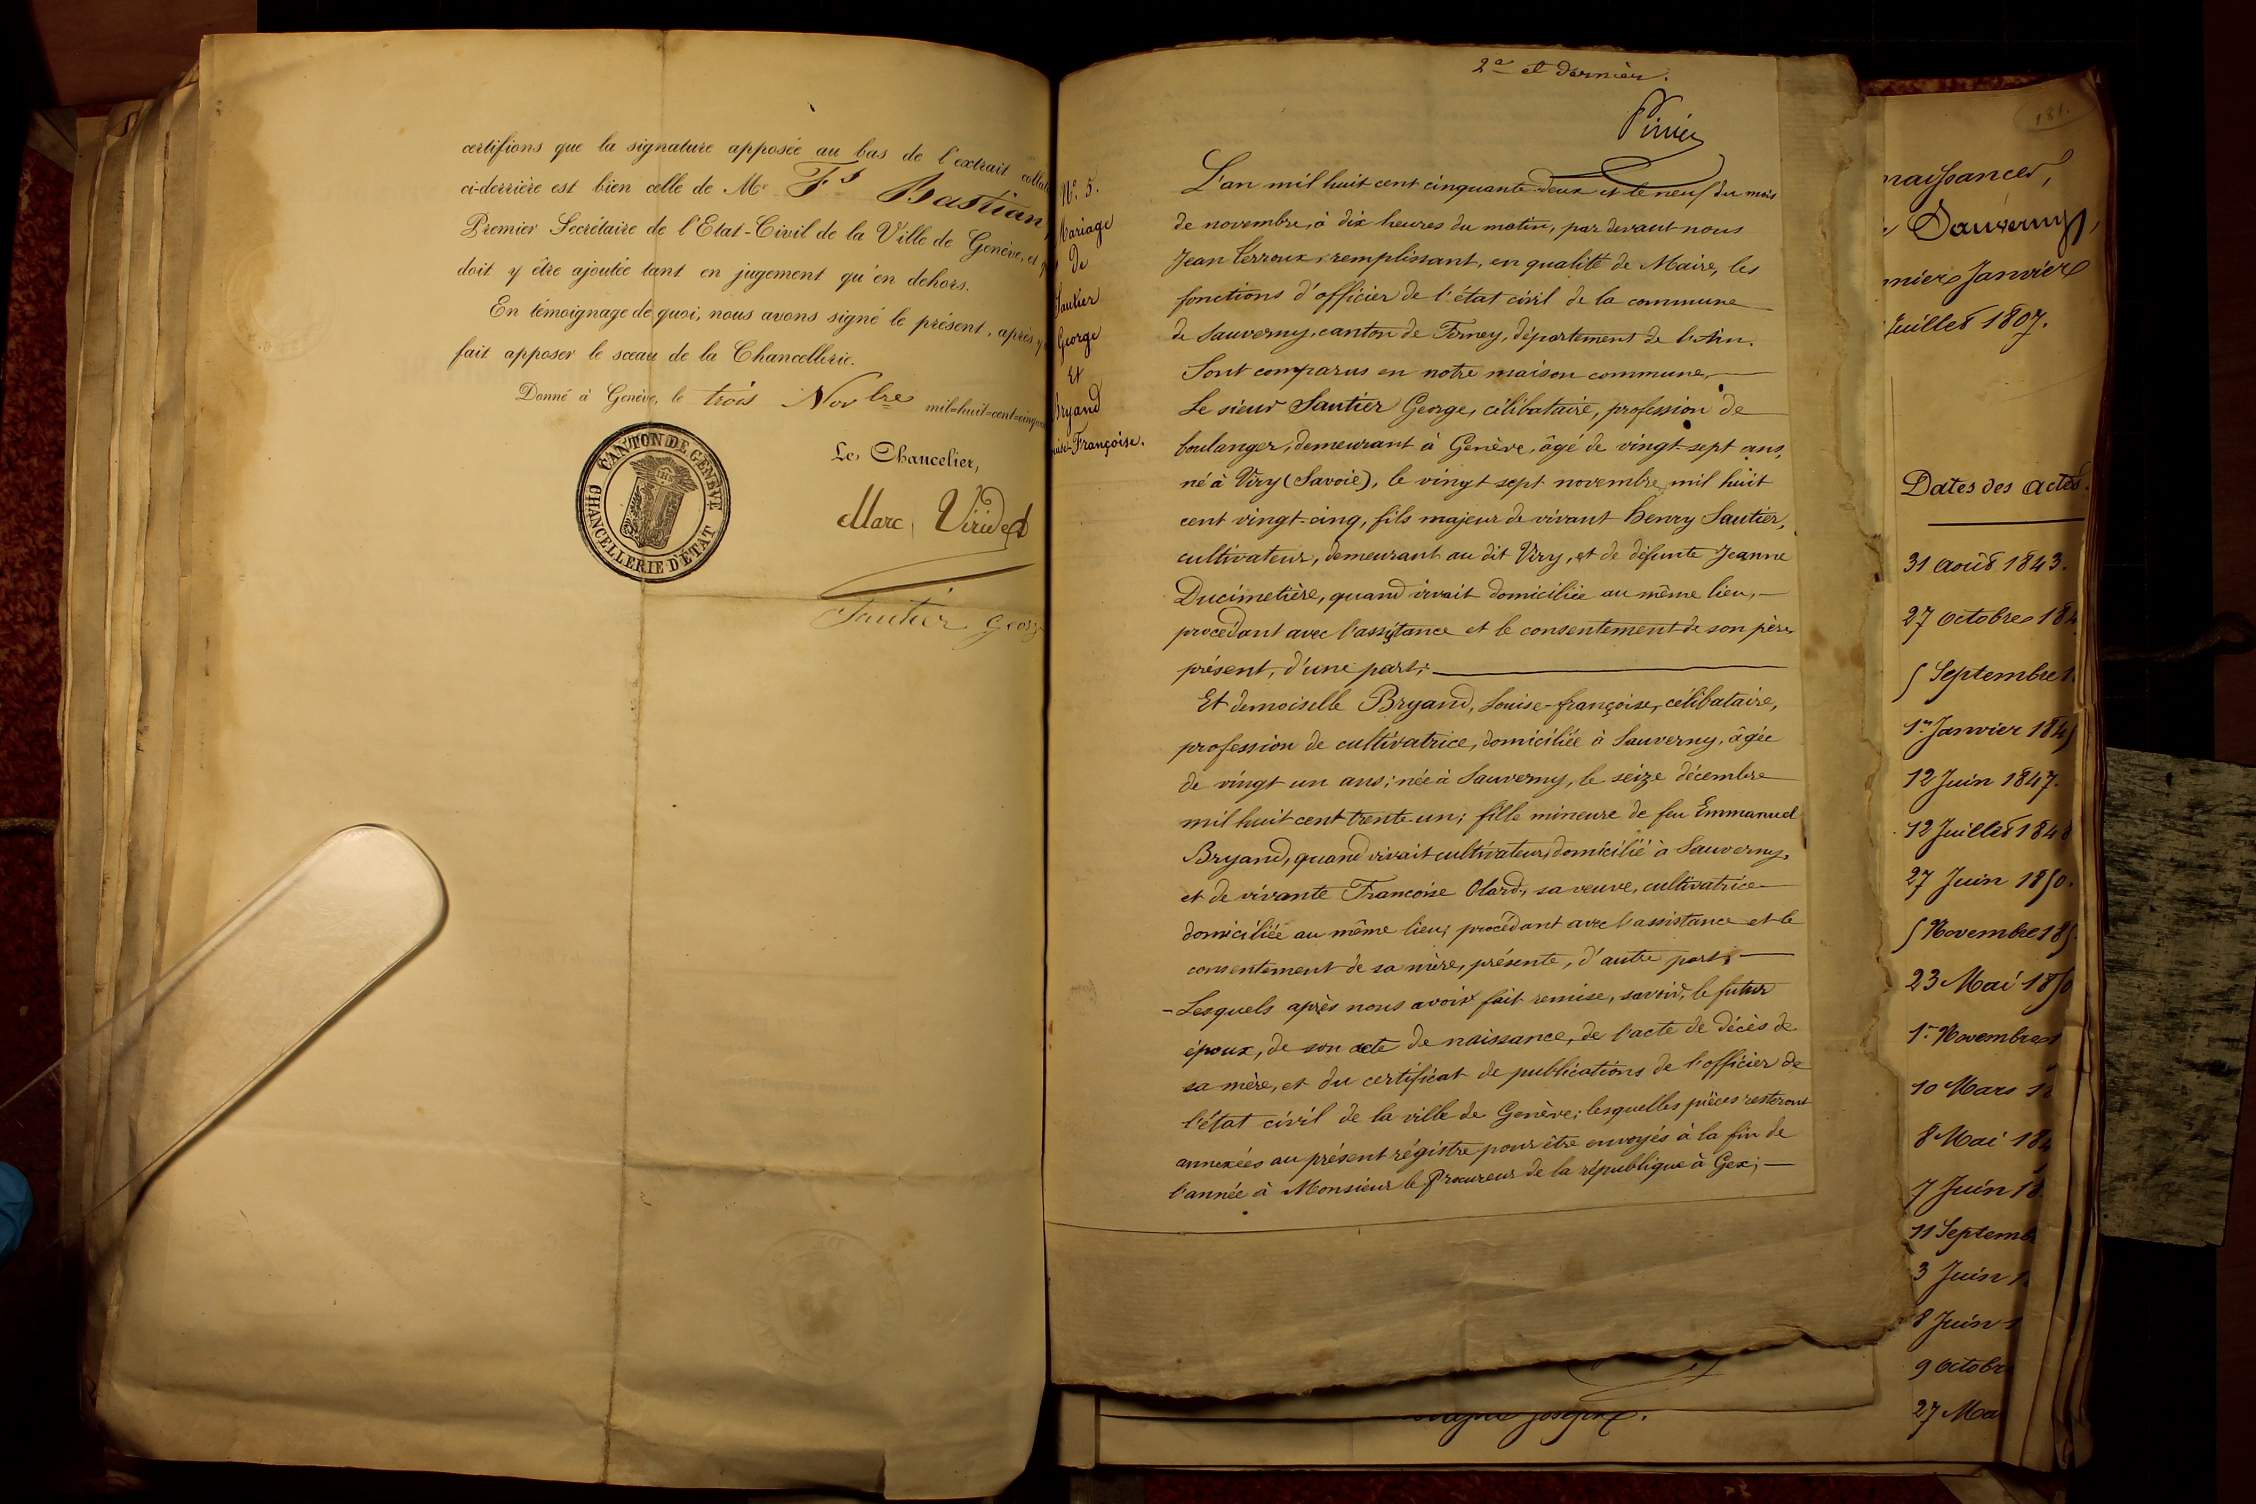 certifions que la signature apposée au bas de l'extrait
ci-derrière est bien celle de Mr. Fs Bastian
Premier Secrétaire de l'Etat-Civil de la Ville de Genève, et
doit y être ajoutée tant en jugement qu'en dehors.
En témoignage de quoi, nous avons signé le présent, après y
fait apposer le sceau de la Chancellerie.
Donné à Genève, le trois Novbre mil-huit-cent-cinqu
Le Chancelier,
CANTON DE GENÈVE
CHANCELLERIE D'ÉTAT
Marc Viridet
Sautier Georg
2e et dernier.
No. 5.
Mariage
de
Sautier
George
Et
Bryand
Louise-Françoise.
L'an mil huit cent cinquante-deux et le neuf du mois
de novembre, à dix heures du matin, par devant nous
Jean Perroux, remplissant, en qualité de Maire, les
fonctions d'officier de l'état civil de la commune
de Sauverny, canton de Ferney, département de l'Ain.
Sont comparus en notre maison commune,
Le sieur Sautier George, célibataire, profession de
boulanger, demeurant à Genève, âgé de vingt-sept ans,
né à Viry (Savoie), le vingt sept novembre mil huit
cent vingt-cinq, fils majeur de vivant henry Sautier,
cultivateur, demeurant au dit Viry, et de défunte Jeanne
Ducimetière, quand vivait domiciliée au même lieu,
procédant avec l'assistance et le consentement de son père
présent, d'une part;
Et demoiselle Bryand, Louise-françoise, célibataire,
profession de cultivatrice, domiciliée à Sauverny, âgée
de vingt un ans; née à Sauverny, le seize décembre
mil huit cent trente-un; fille mineure de feu Emmanuel
Bryand, quand vivait cultivateur, domicilié à Sauverny,
et de vivante Francoise Olard, sa veuve, cultivatrice
domiciliée au même lieu; procédant avec l'assistance et le
consentement de sa mère, présente, d'autre part;
- Lesquels après nous avoir fait remise, savoir, le futur
époux, de son acte de naissance, de l'acte de décès de
sa mère, et du certificat de publications de l'officier de
l'état civil de la ville de Genève; lesquelles pièces resteront
annexées au présent régistre pour être envoyés à la fin de
l'année à Monsieur le Procureur de la république à Gex;
181.
naissances,
Sauverny,
Janvier
Juillet 1807.
Dates des actes.
31 Août 1843.
27 Octobre 184
5 Septembre 1
1er Janvier 184
12 Juin 1847.
12 Juillet 184
27 Juin 1850.
5 Novembre 185
23 Mai 1850
1er Novembre 1
10 Mars 1
8 Mai 184
7 Juin 18
11 Septemb
3 Juin 1
8 Juin 1
9 Octobr
27 Ma